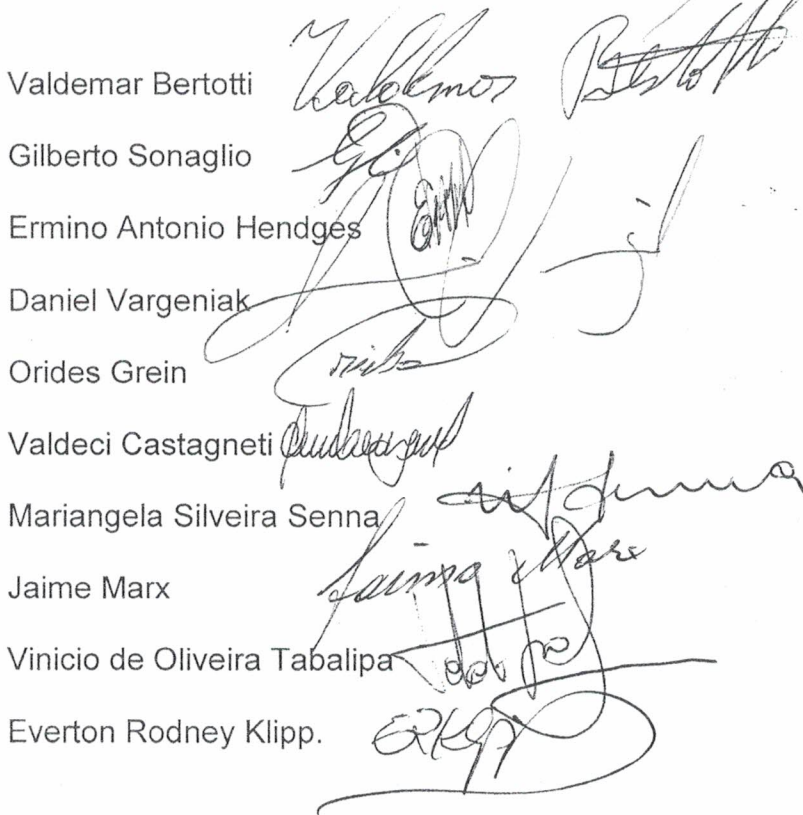 Valdemar Bertotti Valdemar Bertotti
Gilberto Sonaglio
Ermino Antonio Hendges
Daniel Vargeniak
Orides Grein
Valdeci Castagneti
Mariangela Silveira Senna
Jaime Marx Jaime Marx
Vinicio de Oliveira Tabalipa
Everton Rodney Klipp. ERKlipp